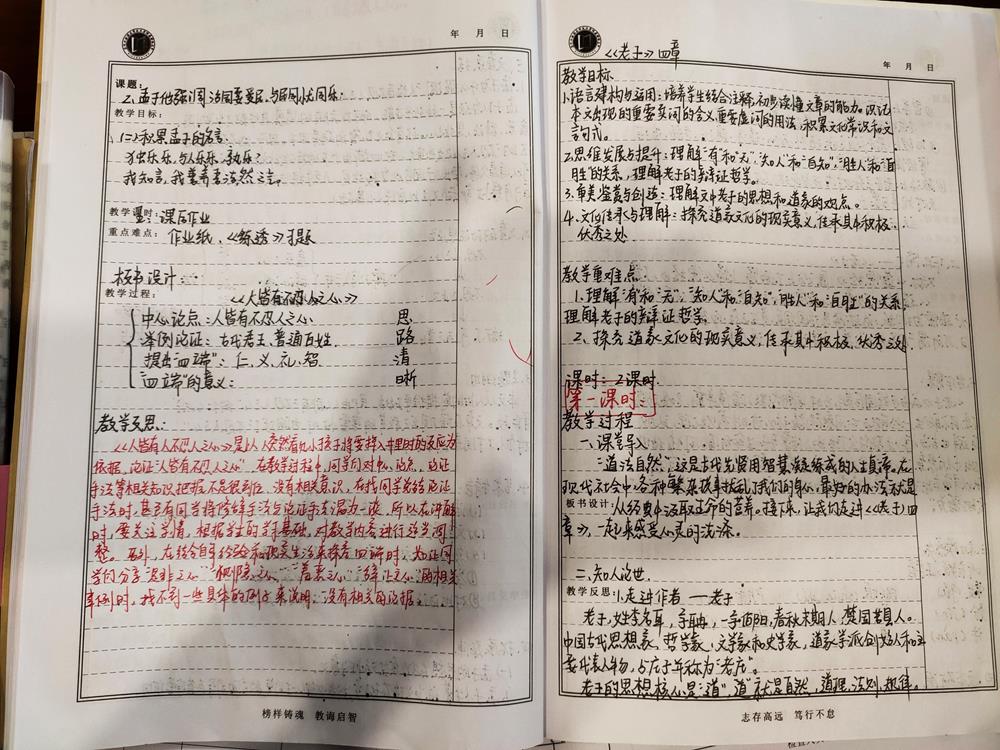 年 月 日
课题：
2、孟子他强调治国要爱民，与民同忧同乐.
教学目标：
(二)积累孟子的名言.
独乐乐，与人乐乐，孰乐？
我知言，我善养吾浩然之气。
教学课时：课后作业
重点难点：作业纸、《练透》习题
板书设计：
教学过程：《人皆有不忍人之心》
中心论点：人皆有不忍人之心 思
举例论证：古代君王、普通百姓 路
提出"四端"：仁、义、礼、智. 清
"四端"的意义： 晰
教学反思：
《人皆有不忍人之心》是以人突然看见小孩子将要掉入井里时的反应为
依据，论证"人皆有不忍人之心"，在教学过程中，同学们对中心论点、论证
手法等相关知识把握不是很到位，没有相关意识，在找同学总结论证
手法时，甚至有同学将修辞手法与论证手法混为一谈，所以在讲解
时，要关注学情，根据学生的学习基础，对教学内容进行适当调
整。另外，在结合自身经验和现实生活来探究四端时，如让同
学们分享"是非之心""恻隐之心""羞恶之心""辞让之心"的相关
事例时，找不到一些具体的例子来说明，没有相关的论据。
榜样铸魂 教诲启智
《老子》四章
年 月 日
教学目标
1.语言建构与运用：培养学生结合注释，初步读懂文章的能力。识记
本文出现的重要实词的含义，重要虚词的用法，积累文化常识和文
言句式。
2.思维发展与提升：理解"有"和"无"，"知人"和"自知"，"胜人"和"自
胜"的关系，理解老子的辩证哲学。
3.审美鉴赏与创造：理解文中老子的思想和道家的观点。
4.文化传承与理解：探究道家文化的现实意义，传承其中积极、
优秀之处
教学重难点：
1.理解"有"和"无"，"知人"和"自知"，"胜人"和"自胜"的关系，
理解老子的辩证哲学
2、探究道家文化的现实意义，传承其中积极、优秀之处
课时：2课时.
第一课时：
教学过程
一、课堂导入
"道法自然"，这是古代先贤用智慧凝练成的人生真谛。在
现代社会中各种繁杂琐事扰乱了我们的身心，最好的办法就是
板书设计：从经典中汲取生命的营养。接下来，让我们走进《老子》四
章》，一起来感受心灵的洗涤。
二、知人论世.
教学反思：1.走进作者 — 老子
老子，姓李名耳，字聃，一字伯阳，春秋末期人，楚国苦县人。
中国古代思想家、哲学家、文学家和史学家，道家学派创始人和主
要代表人物，与庄子并称为"老庄"。
老子的思想核心是"道"，"道"就是自然、道理、法则、规律。
志存高远 笃行不怠